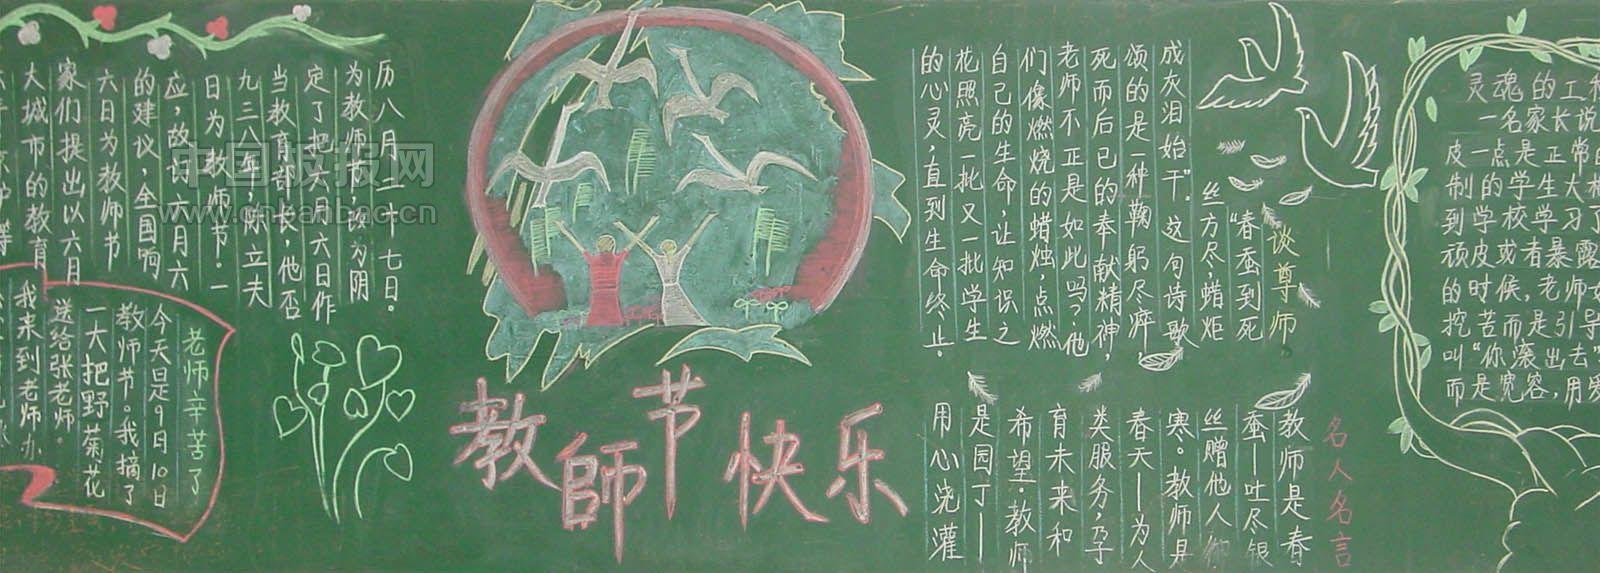 历八月二十七日。
为教师节，改为阴
定了把六月六日作
当教育部长，他否
九三八年 陈立夫
日为教师节。一
应，故订六月六
的建议，全国响
六日为教师节
家们提出以六月
大城市的教育
中国板报网
www.cnbanbao.cn
老师辛苦了
今天是9月10日
教师节。我摘了
一大把野菊花
送给张老师。
我来到老师办
教師节快乐
谈尊师
“春蚕到死
丝方尽，蜡炬
成灰泪始干”。这句诗歌
颂的是一种鞠躬尽瘁，
死而后已的奉献精神，
老师不正是如此吗？他
们像燃烧的蜡烛，点燃
自己的生命，让知识之
花照亮一批又一批学生
的心灵，直到生命终止。
名人名言
教师是春
蚕—吐尽银
丝赠他人御
寒。教师是
春天—为人
类服务，孕
育未来和
希望。教师
是园丁—
用心浇灌
灵魂的工程
一名家长说
皮一点是正常的
制的学生大相
到学校学习了
顽皮或者暴露
的时候，老师
挖苦而是引导
叫“你滚出去”
而是宽容，用爱